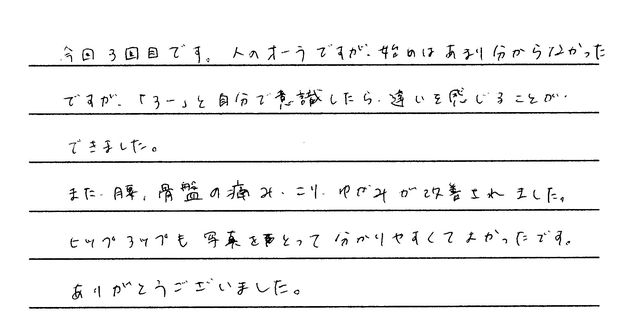 今回3回目です。人のオーラですが、始めはあまり分からなかった
ですが、「う-」と自分で意識したら、違いを感じることが
できました。
また、腰、骨盤の痛み、こり、ゆがみが改善されました。
ヒップアップも写真をとって分かりやすくてよかったです。
ありがとうございました。